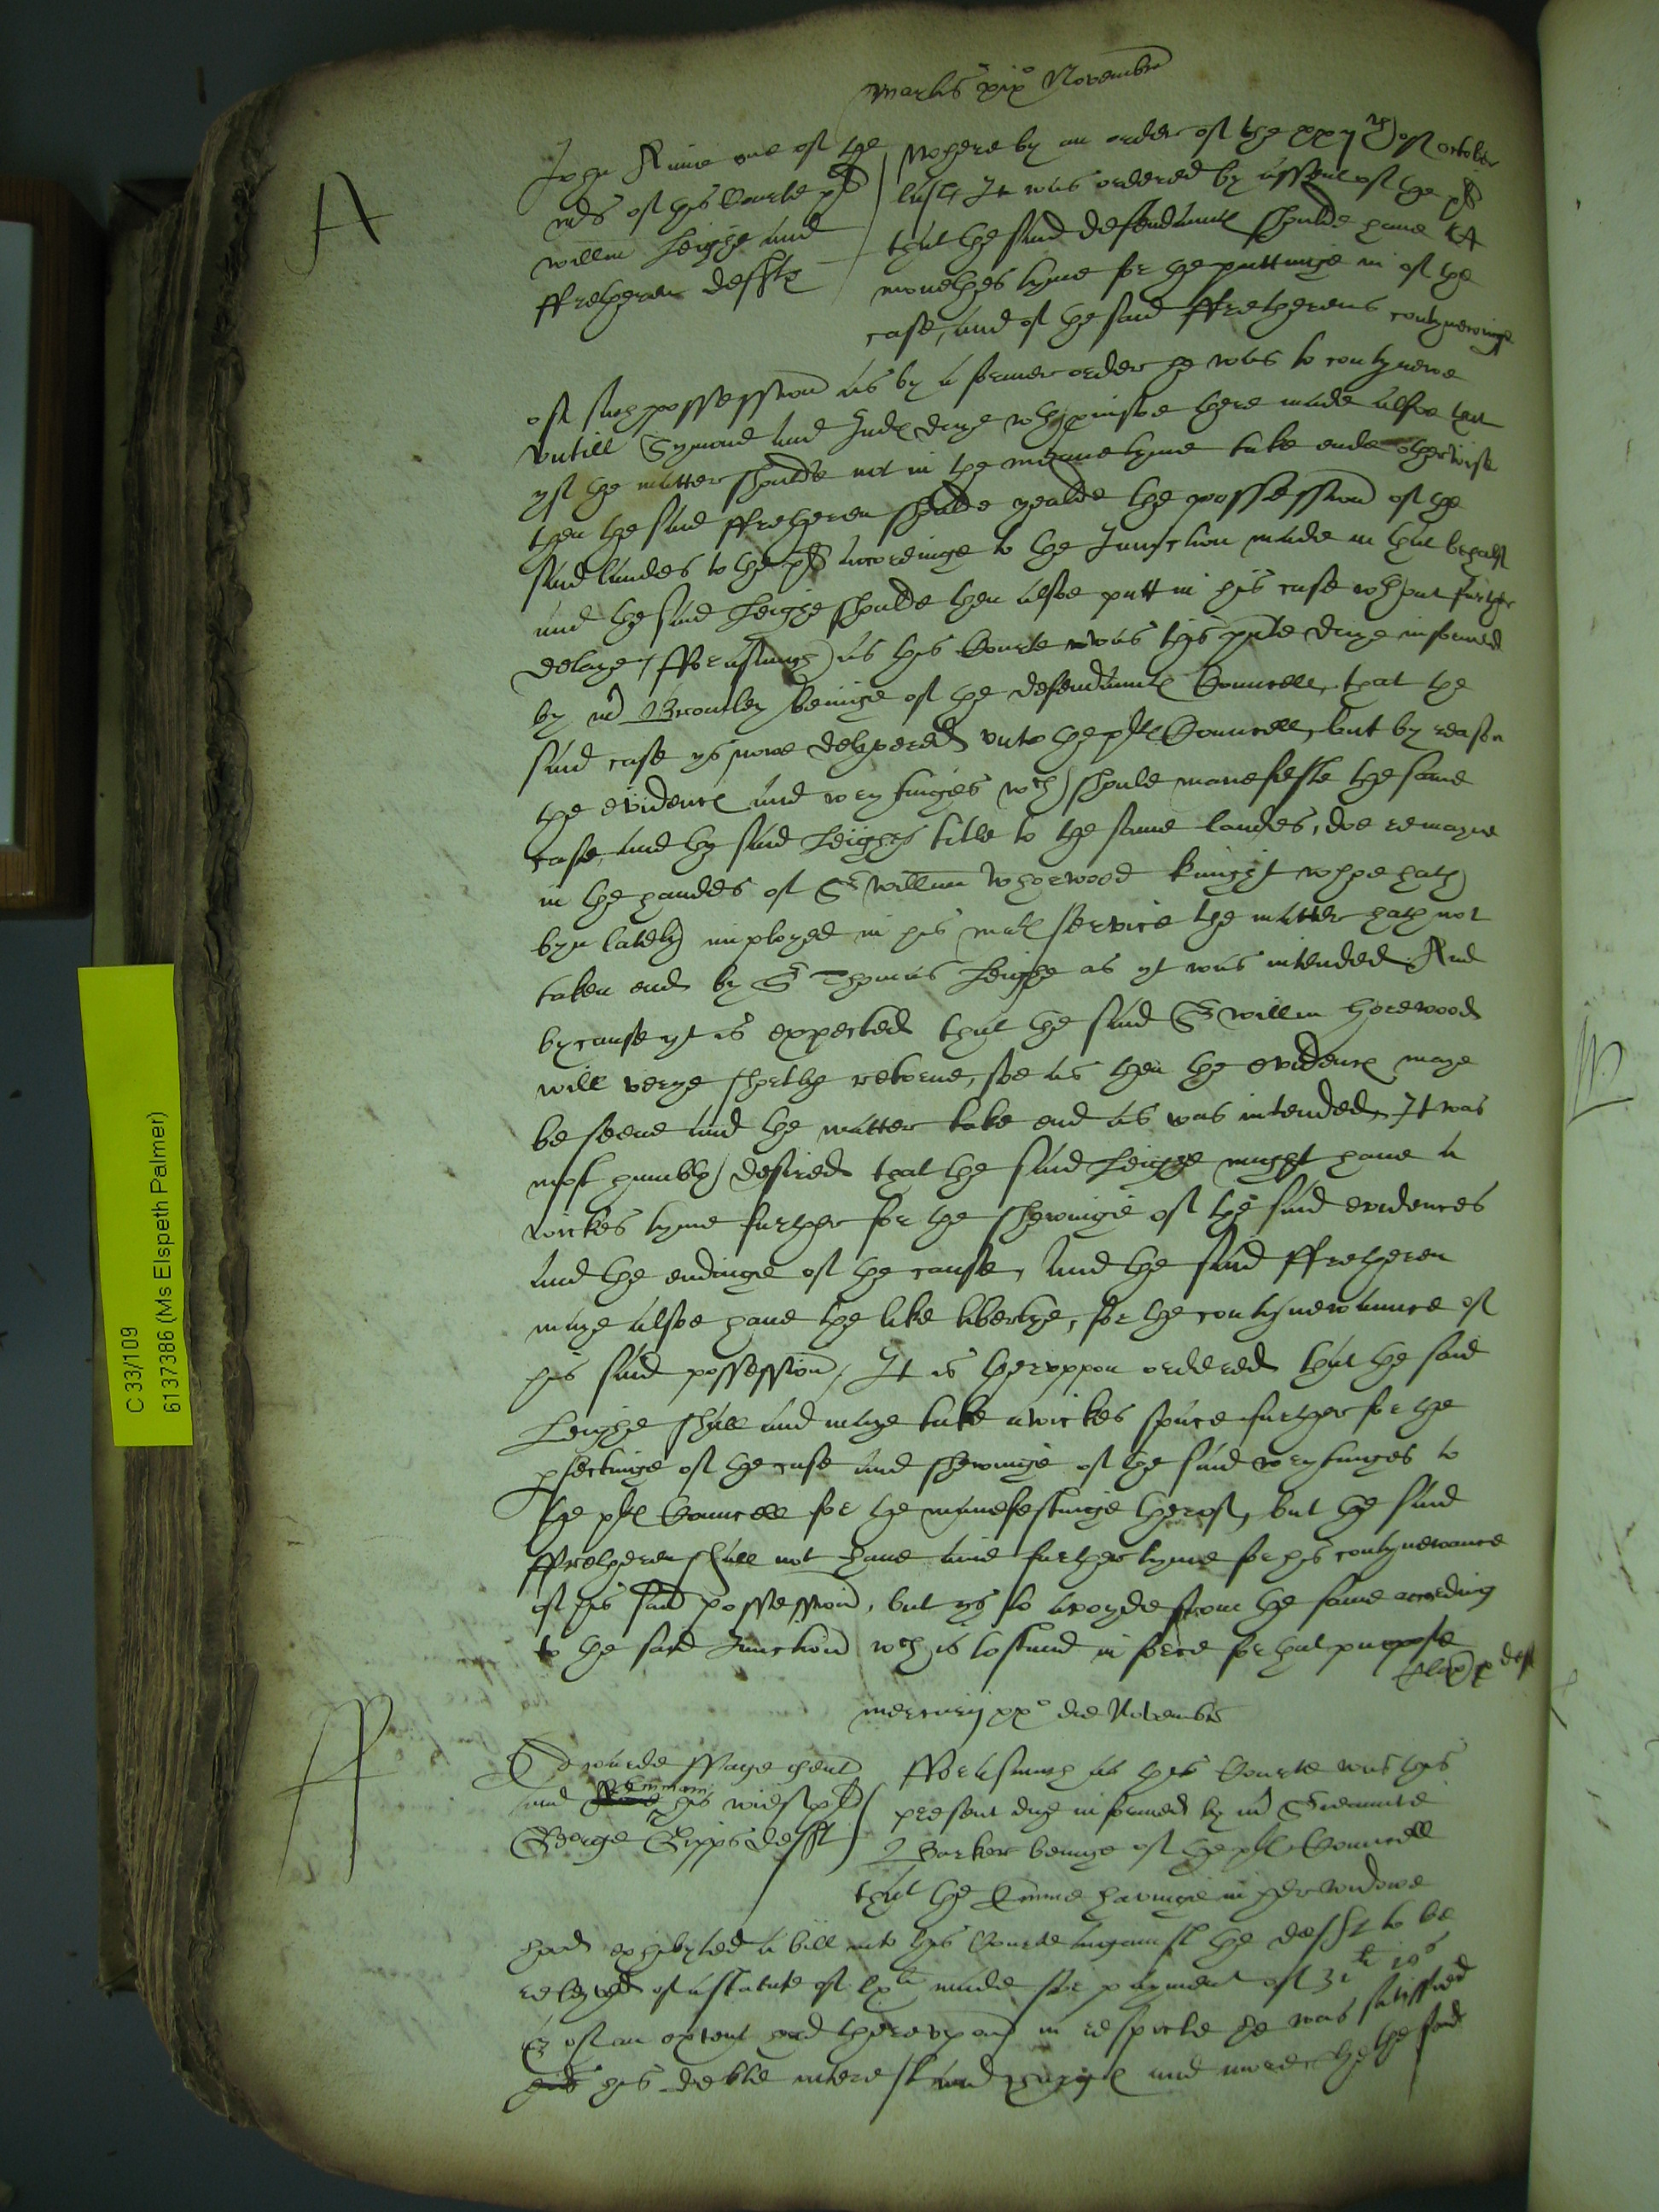 Martis xix° Novembris
A
John Kinne one of the
mrs of this Courte pl
Willm Leighe and
ffretheren defftes
Where by an order of the xxjth of October
last, It was ordered by assent of the pl
that the said defendauntes shoulde have
monethes tyme for the puttinge in of the
case, and of the said ffretherens contynewinge
of such possession as by a former order he was to contynewe
untill Symond and Jude daye wth provisoe there made alsoe that
yf the matter shoulde not in the meane tyme take ende otherwise
then the said ffretheren shoulde yealde the possession of the
said landes to the pl accordinge to the Iniunction made in that behalf
and the said Leighe shoulde then alsoe putt in his case wthout further
delaye, fforasmuch as this Courte was this pnte daye informed
by mr Bromley beinge of the defendauntes Councell, that the
said case ys nowe delyvered unto the ples Councell, but by reason
the evidences and wrytinges wch should manefeste the same
case, and the said Leighes title to the same landes, doe remayne
in the handes of Sr William Whorwood knight whoe hath
byn lately imployed in his mates service the matter hath not
taken end by Sr Thomas Leighe as yt was intended And
bycause yt is expected that the said Sr Willm Horewood
will verye shortlye retorne, soe as then the evidences maye
be seene and the matter take end as was intended, It was
most humbly desired that the said Leighe might have a
wickes tyme further for the shewinge of the said evidences
and the endinge of the cause, And the said ffretheren
maye alsoe have the like libertye, for the contynewaunce of
his said possession, It is thereuppon ordered that the said
Leighe shall and maye take a wickes space further for the
pfectinge of the case and shewinge of the said wrytinges to
the ples Councell for the manefestinge therof, but the said
ffretheren shall not have anie further tyme for his contynewance
of his said possession, but ys to avoyde from the same according
to the said Iniunction wch is to stand in force for that purpose
deff
Mercurij xx° die Novembris
A
Edwarde ffage gent
and Emme his wief pl
George Gipps defft
fforasmuch as this Courte was this
present day informed by mr Serieaunte
Barker beinge of the ples Councell
that the Emme havinge in her widowe
had exhibyted a bill into this Courte against the defft to be
releyved of a statute of lxli made for payment of 31li 10s
& of an extent had thereupon in respecte he was satisfied
his debte interest and chargs and more the the said
C 33/109
6137386 (Ms Elspeth Palmer)